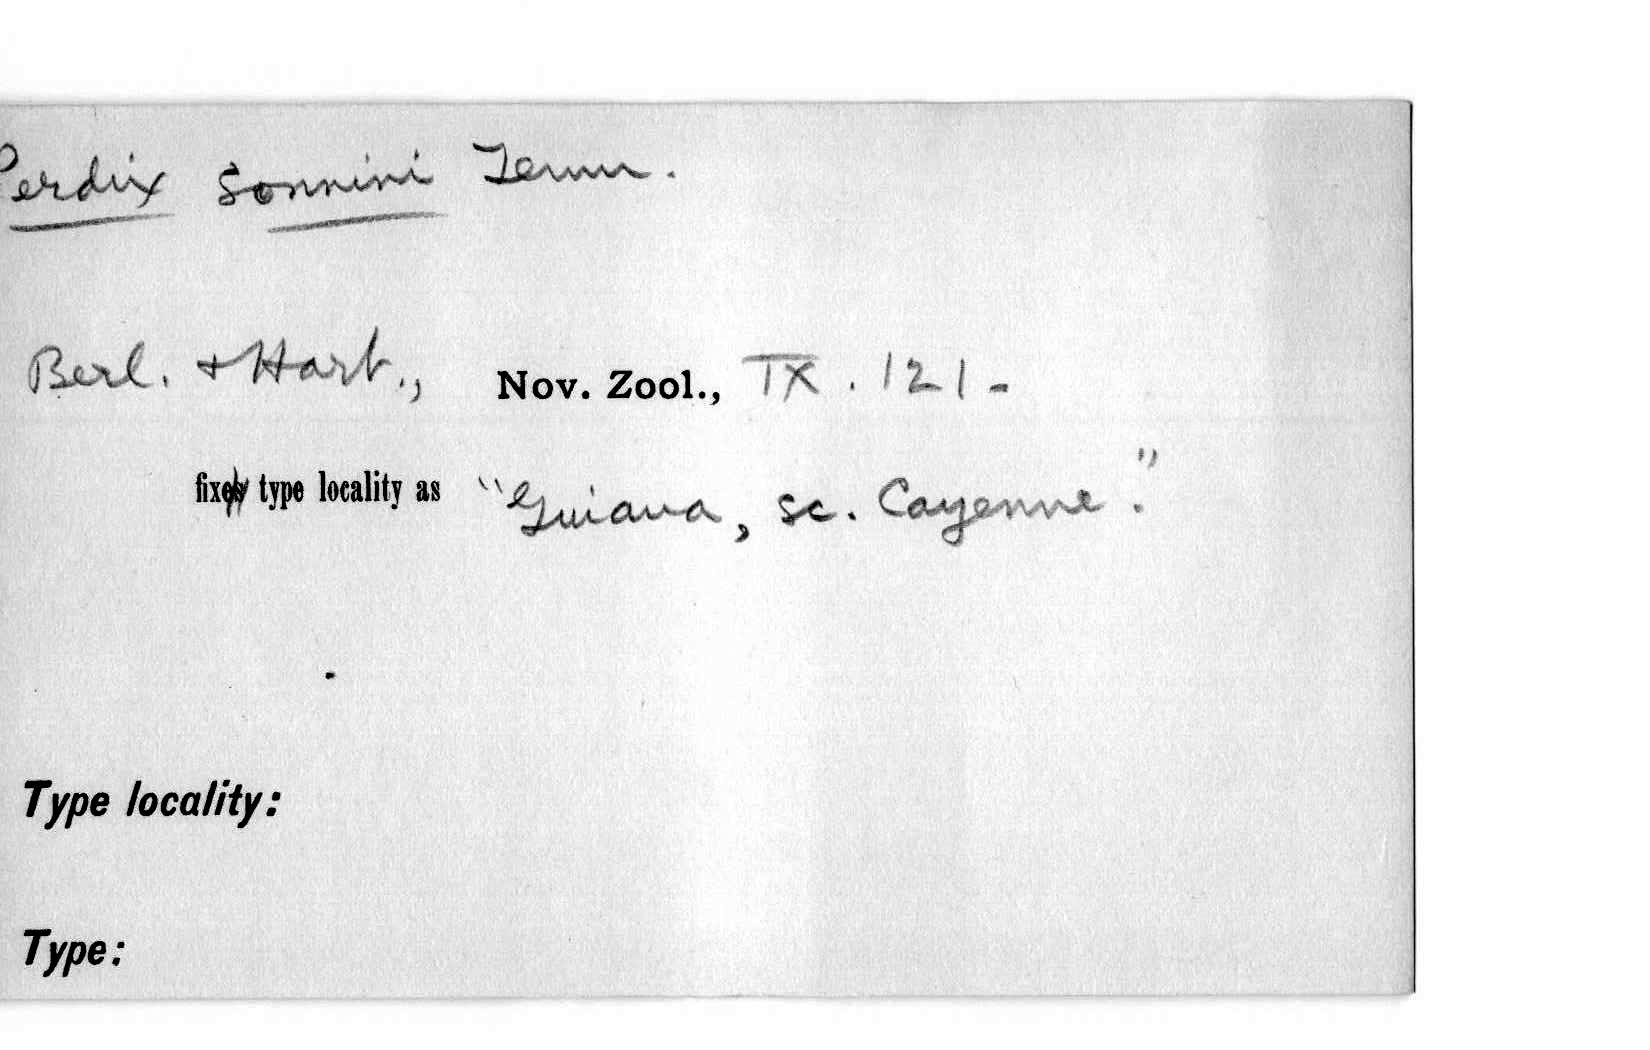 Perdix sonnini Temm.
Berl. + Hart., Nov. Zool., IX. 121-
fix type locality as "Guiana, sc. Cayenne."
Type locality:
Type: